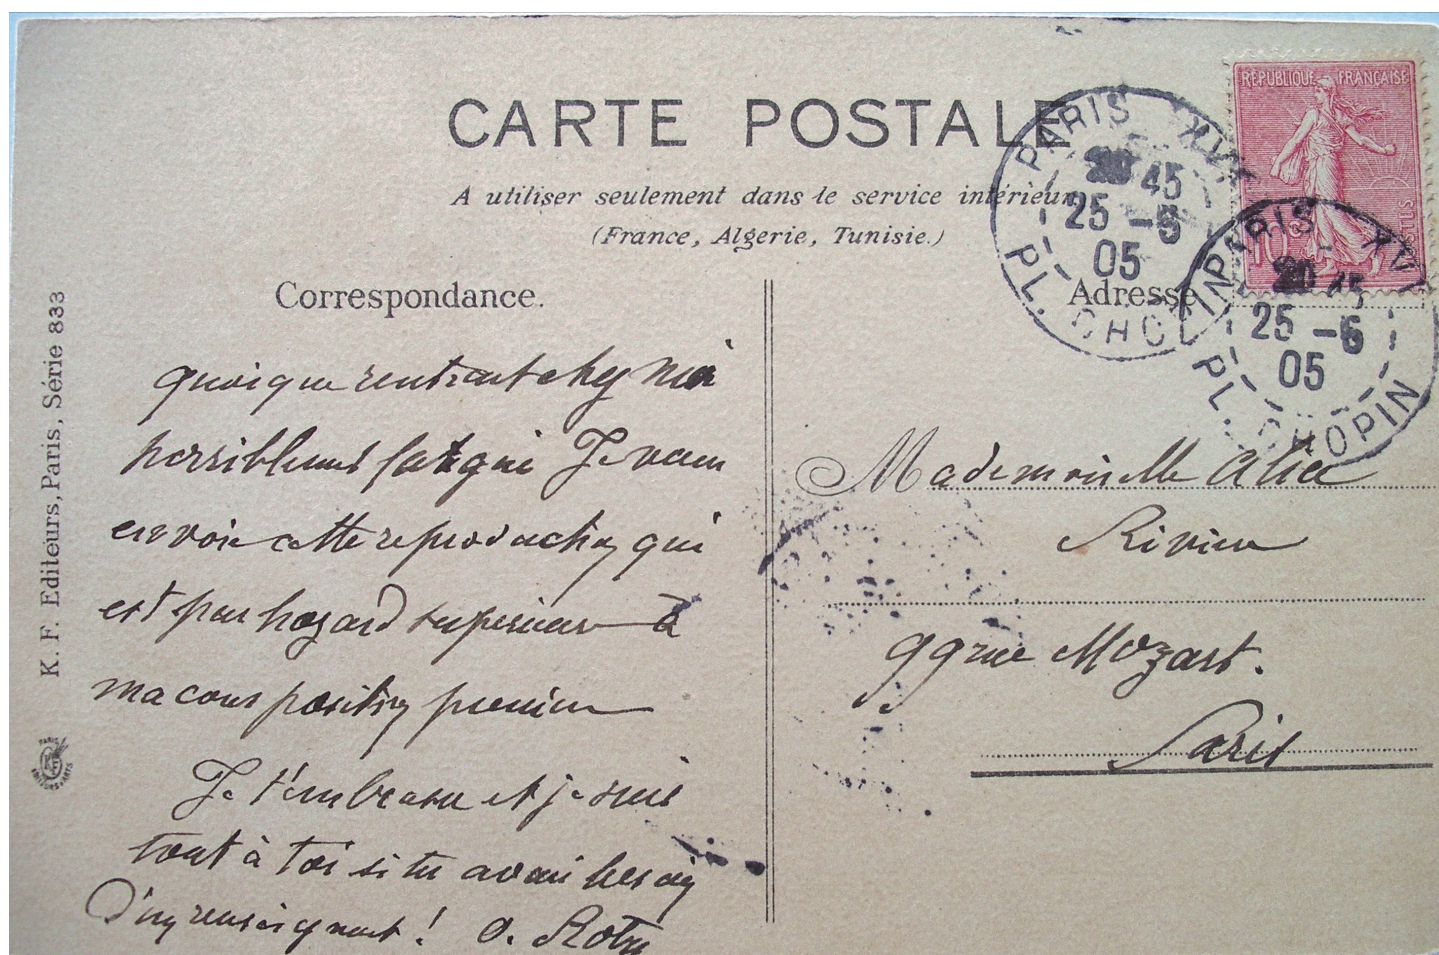 CARTE POSTALE
A utiliser seulement dans le service intérieur
(France, Algerie, Tunisie.)
RÉPUBLIQUE FRANÇAISE
10
POSTES
PARIS XVI
45
25 - 5
05
PL. CHOPIN
PARIS XVI
45
25 - 5
05
PL. CHOPIN
K. F. Editeurs, Paris, Série 833
Correspondance.
quoique rentrant chez moi
horriblement fatigué Je vous
envoie cette reproduction qui
est par hazard superieure à
ma composition première
Je t'embrasse et je suis
tout à toi si tu avais besoin
d'un renseignement! O. Roty
Adresse
Mademoiselle Alice
Rivière
99 rue Mozart.
Paris